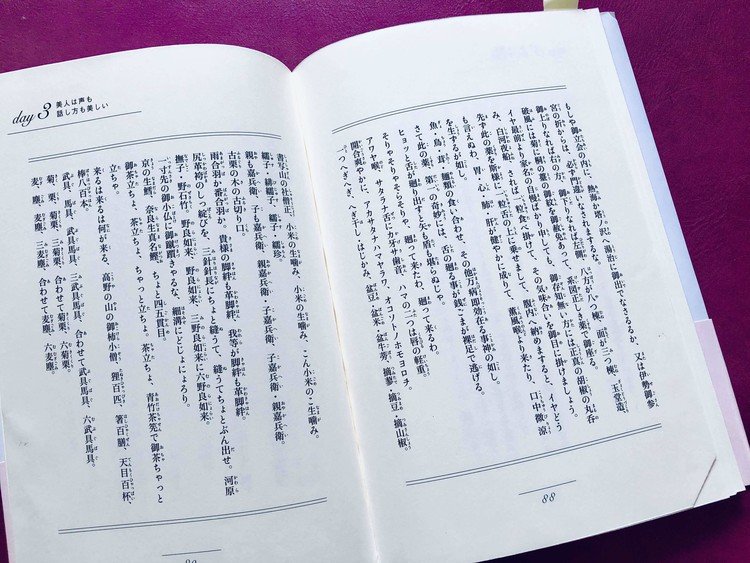 もしや御立会の内に、熱海か塔ノ沢へ湯治に御出でなさるるか、又は伊勢御参
宮の折からは、必ず門違いなされまするな。
御上りなれば右の方、御下りなれば左側、八方が八つ棟、面が三つ棟、玉堂造、
破風には菊に桐の薹の御紋を御赦免あって、系図正しき薬で御座る。
イヤ最前より家名の自慢ばかり申しても、御存知無い方には正真の胡椒の丸呑
み、白河夜船、されば一粒食べ掛けて、その気味合いを御目に掛けましょう。
先ず此の薬を斯様に一粒舌の上に乗せまして、腹内へ納めますると、イヤどう
も言えぬわ、胃・心・肺・肝が健やかに成りて、薫風喉より来たり、口中微涼
を生ずるが如し。
魚・鳥・茸・麺類の食い合わせ、その他万病即効在る事神の如し。
さて此の薬、第一の奇妙には、舌の廻る事が銭ごまが裸足で逃げる。
ヒョッと舌が廻り出すと矢も盾も堪らぬじゃ。
そりゃそりゃそらそりゃ、廻って来たわ、廻って来るわ。
アワヤ喉、サタラナ舌にカ牙サ歯音、ハマの二つは唇の軽重。
開合爽やかに、アカサタナハマヤラワ、オコソトノホモヨロヲ。
一つへぎへぎに、へぎ干し・はじかみ、盆豆・盆米・盆牛蒡、摘蓼・摘豆・摘山椒。
88
day 3 美人は声も
話し方も美しい
書写山の社僧正、小米の生噛み、小米の生噛み、こん小米のこ生噛み。
繻子・緋繻子、繻子・繻珍。
親も嘉兵衛、子も嘉兵衛、親嘉兵衛・子嘉兵衛、子嘉兵衛・親嘉兵衛。
古栗の木の古切り口。
雨合羽か番合羽か。貴様の脚絆も革脚絆、我等が脚絆も革脚絆。
尻革袴のしっ綻びを、三針針長にちょと縫うて、縫うてちょとぶん出せ。河原
撫子・野石竹、野良如来、野良如来、三野良如来に六野良如来。
一寸先の御小仏に御蹴躓きゃるな、細溝にどじょにょろり。
京の生鱈、奈良生真名鰹、ちょと四五貫目。
御茶立ちょ、茶立ちょ、ちゃっと立ちょ。茶立ちょ、青竹茶筅で御茶ちゃっと
立ちゃ。
来るは来るは何が来る、高野の山の御柿小僧、狸百匹、箸百膳、天目百杯、
棒八百本。
武具、馬具、武具馬具、三武具馬具、合わせて武具馬具、六武具馬具。
菊、栗、菊栗、三菊栗、合わせて菊栗、六菊栗。
麦、塵、麦塵、三麦塵、合わせて麦塵、六麦塵。